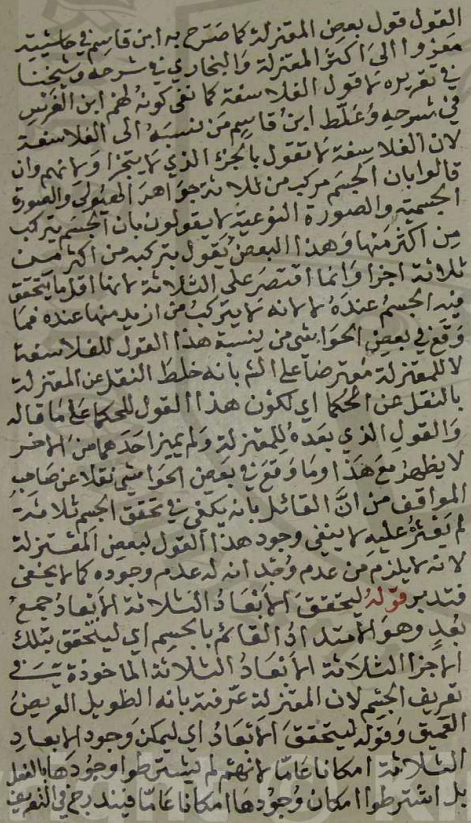 القول قول بعض المعتزلة كما صرح به ابن قاسم في حاشيته
معزوا الى اكثر المعتزلة والبخاري في شرحه وشيخنا
في تقريره لا قول الفلاسفة كما نفى كونه لهم ابن الغرس
في شرحه وغلط ابن قاسم من نسبه الى الفلاسفة
لان الفلاسفة لا تقول بالجزء الذي لا يتجزا ولانهم وان
قالوا بان الجسم مركب من ثلاثة جواهر الهيولى والصورة
الجسمية والصورة النوعية لا يقولون بان الجسم يتركب
من اكثر منها وهذا البعض يقول بتركبه من اكثر من
ثلاثة اجزا وانما اقتصر على الثلاثة لانها اقل ما يتحقق
فيه الجسم عنده لا لانه لا يتركب من ازيد منها عنده فما
وقع في بعض الحواشي من نسبة هذا القول للفلاسفة
لا للمعتزلة معترضا على الش بانه خلط النقل عن المعتزلة
بالنقل عن الحكما اي لكون هذا القول للحكما على ما قاله
والقول الذي بعده للمعتزلة ولم يميز احدهما من الاخر
لا يظهر مع هذا وما وقع في بعض الحواشي نقلا عن صاحب
المواقف من ان القائل بانه يكفي في تحقق الجسم ثلاثة
لم يعثر عليه لا ينفي وجود هذا القول لبعض المعتزلة
لانه لا يلزم من عدم وجدانه له عدم وجوده كما لا يخفى
فتدبر قوله ليتحقق الابعاد الثلاثة الابعاد جمع
بعد وهو الامتداد القائم بالجسم اي ليتحقق بتلك
الاجزا الثلاثة الابعاد الثلاثة الماخوذة في
تعريف الجسم لان المعتزلة عرفته بانه الطويل العريض
العميق وقوله ليتحقق الابعاد اي ليمكن وجود الابعاد
الثلاثة امكانا عاما لانهم لم يشترطوا وجودها بالفعل
بل اشترطوا امكان وجودها امكانا عاما فيندرج في التعريف